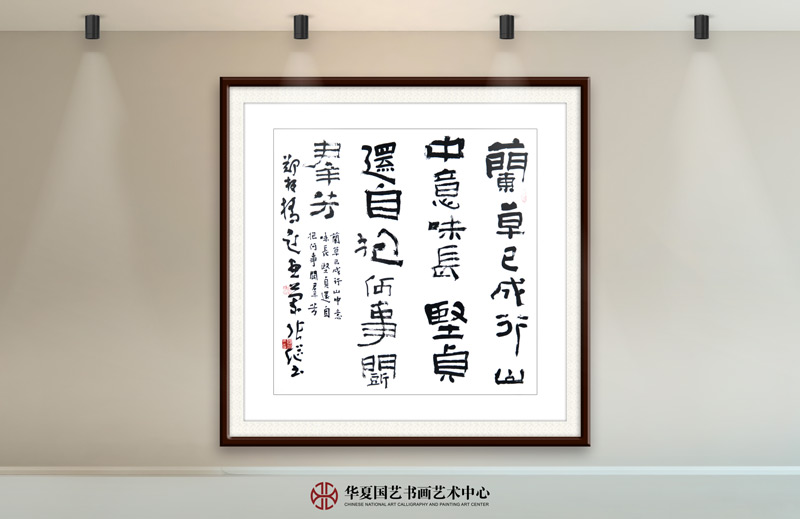 蘭草已成行山
中意味長堅貞
還自抱何事鬭
羣芳
蘭草已成行山中意
味長堅貞還自
抱何事鬭羣芳
鄭板橋題画蘭
华夏国艺书画艺术中心
CHINESE NATIONAL ART CALLIGRAPHY AND PAINTING ART CENTER